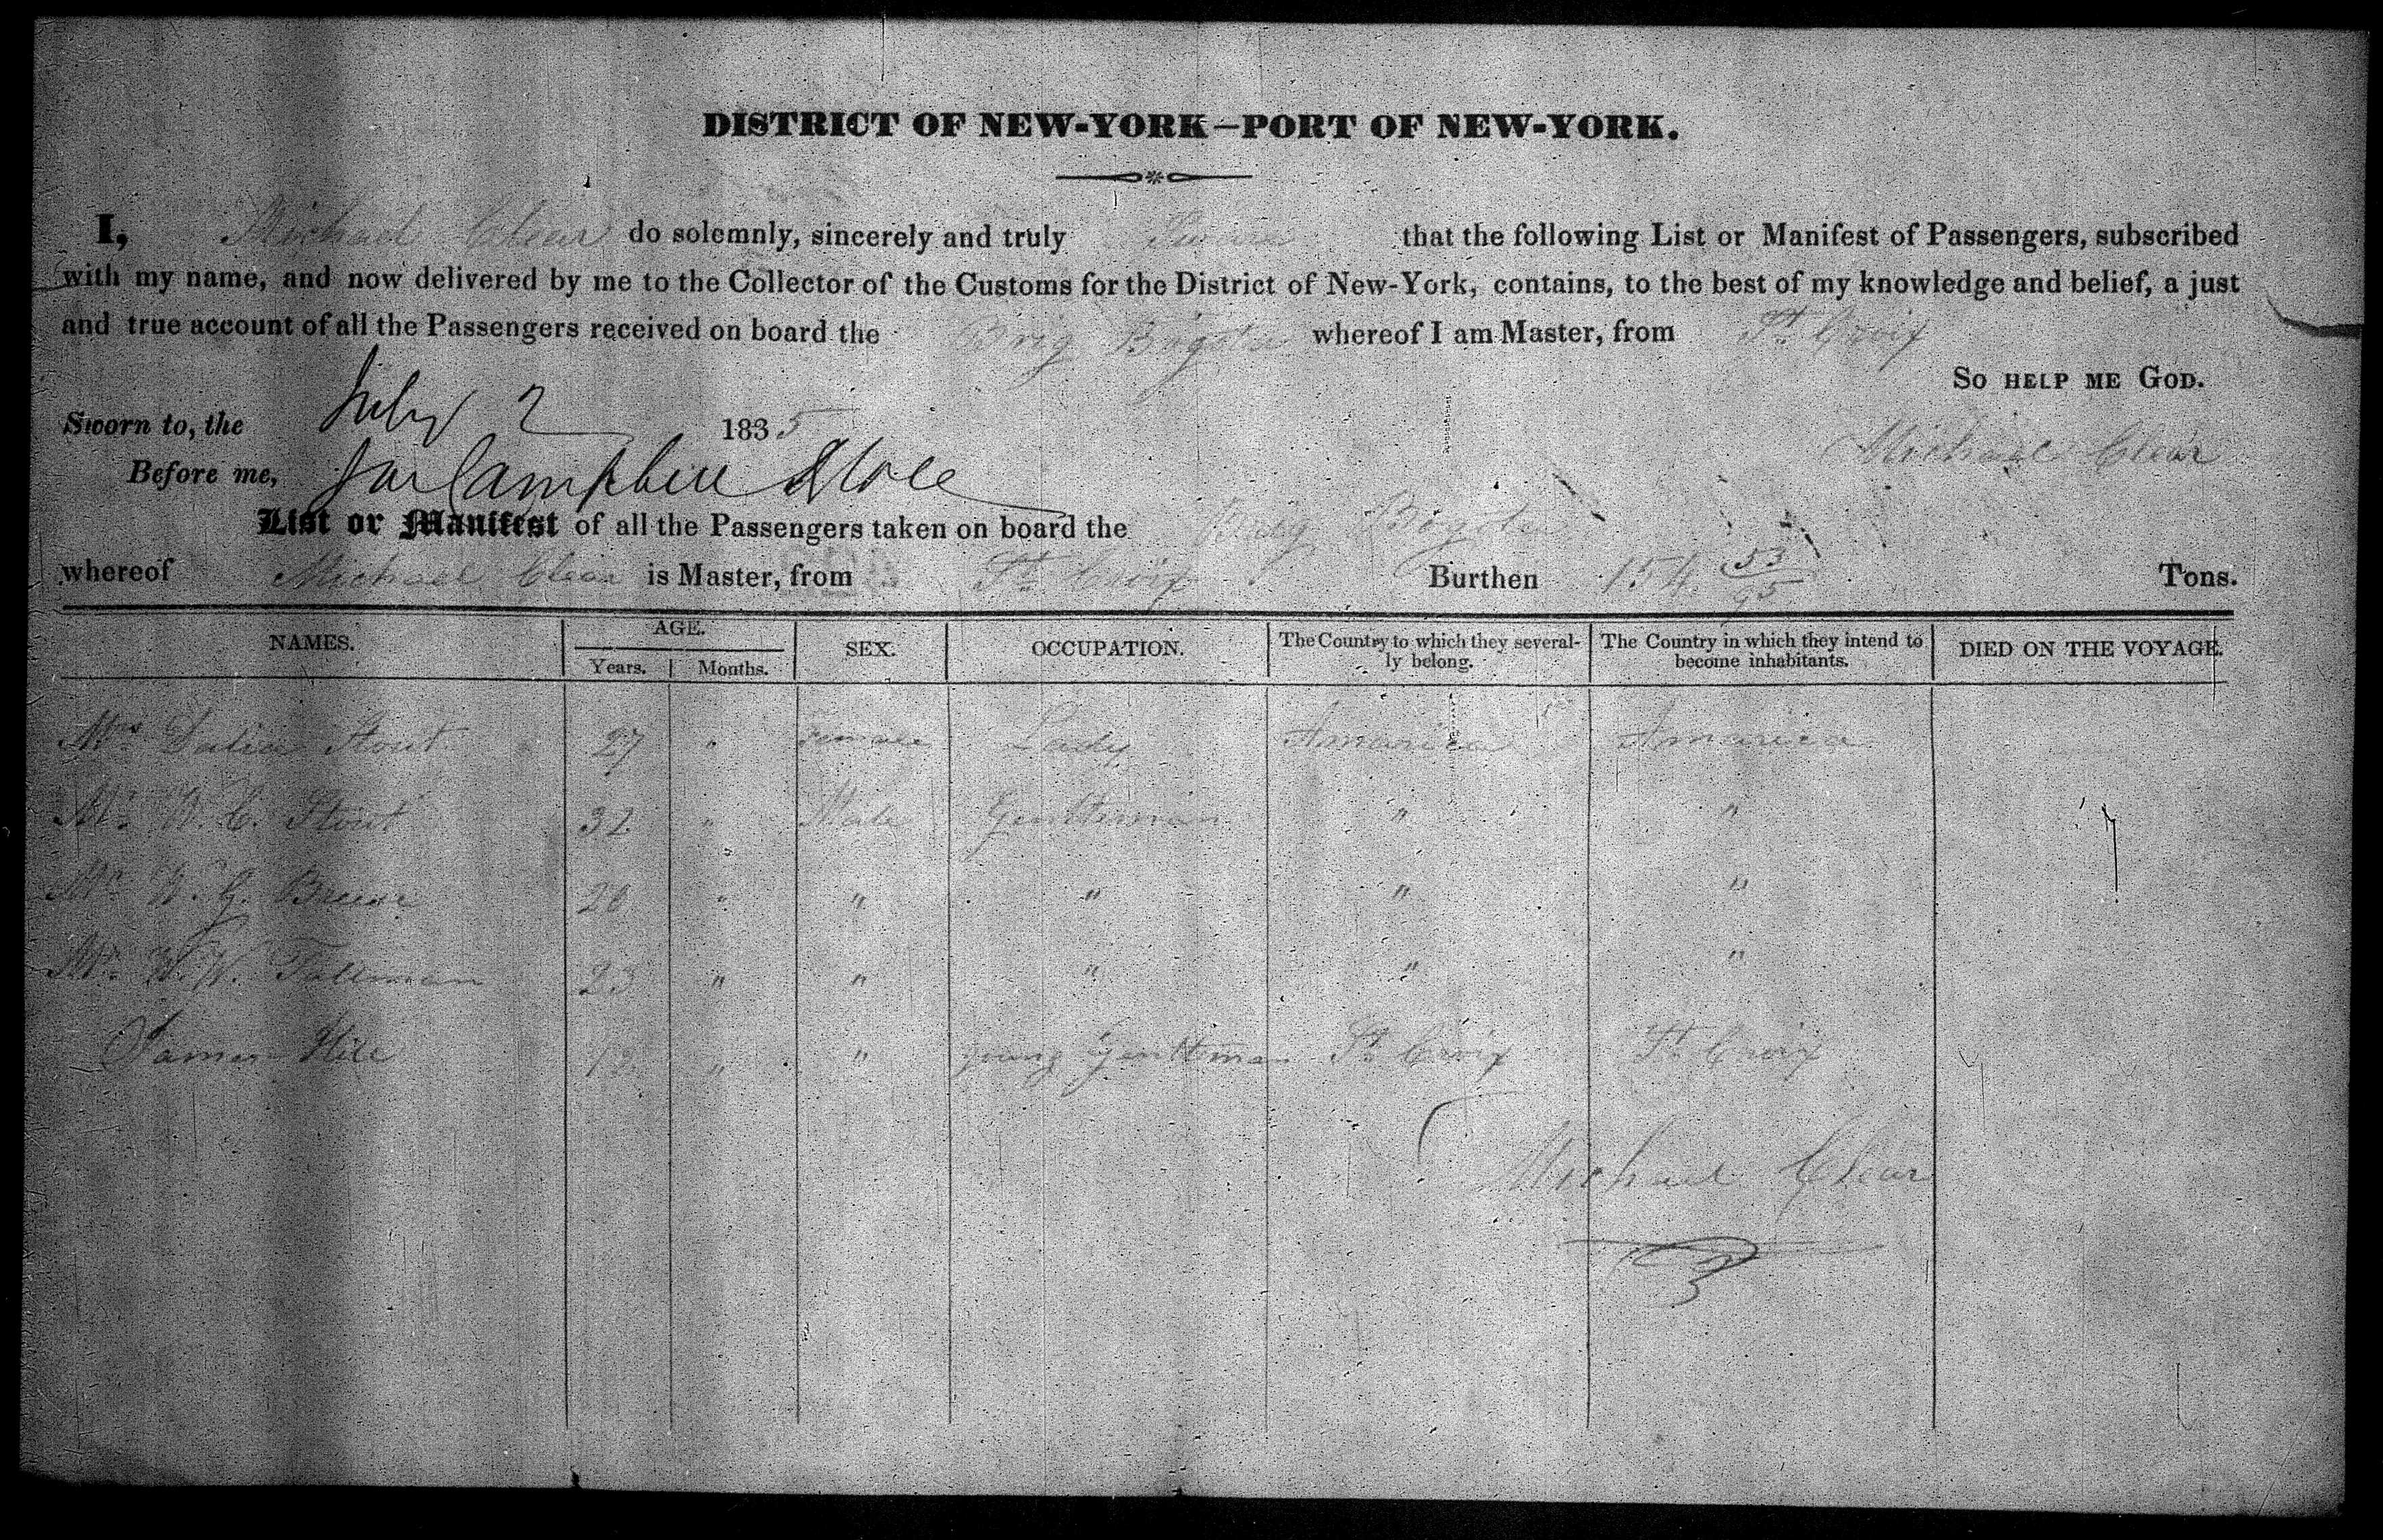 DISTRICT OF NEW-YORK—PORT OF NEW-YORK.
I, Michael Clear do solemnly, sincerely and truly Swear that the following List or Manifest of Passengers, subscribed
with my name, and now delivered by me to the Collector of the Customs for the District of New-York, contains, to the best of my knowledge and belief, a just
and true account of all the Passengers received on board the Brig whereof I am Master, from St. Croix
SO HELP ME GOD.
Sworn to, the July 2 1835
Michael Clear
Before me, Campbell
List or Manifest of all the Passengers taken on board the
whereof Michael Clear is Master, from St. Croix Burthen 154 53/95 Tons.
NAMES. AGE. Years. Months. SEX. OCCUPATION. The Country to which they severally belong. The Country in which they intend to become inhabitants. DIED ON THE VOYAGE.
Mrs Stout 27 " Female Lady America America
Mr. W. C. Stout 32 " Male Gentleman " "
Mr W. G. " " " " "
Mr. W. W. Tallman 23 " " " " "
James Hill " " young Gentleman St. Croix St. Croix
Michael Clear